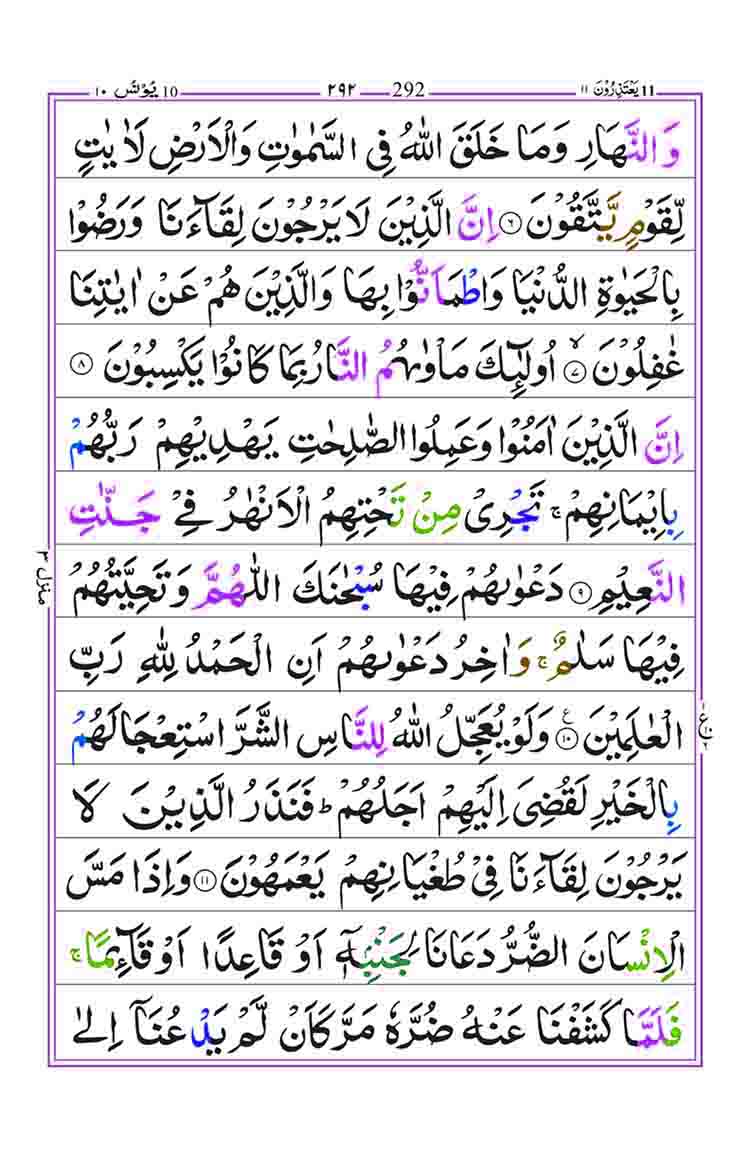 11 یَعْتَذِرُوْنَ ۱۱ 292 ۲۹۲ 10 یُوْنُس ۱۰
وَ النَّهَارِ وَمَا خَلَقَ اللّٰهُ فِی السَّمٰوٰتِ وَالْاَرْضِ لَاٰیٰتٍ
لِّقَوْمٍ یَّتَّقُوْنَ ۶ اِنَّ الَّذِیْنَ لَا یَرْجُوْنَ لِقَآءَنَا وَرَضُوْا
بِالْحَیٰوةِ الدُّنْیَا وَاطْمَاَنُّوْا بِهَا وَالَّذِیْنَ هُمْ عَنْ اٰیٰتِنَا
غٰفِلُوْنَ ۷ۙ اُولٰٓئِكَ مَاْوٰىهُمُ النَّارُ بِمَا كَانُوْا یَكْسِبُوْنَ ۸
اِنَّ الَّذِیْنَ اٰمَنُوْا وَعَمِلُوا الصّٰلِحٰتِ یَهْدِیْهِمْ رَبُّهُمْ
بِاِیْمَانِهِمْ ۚ تَجْرِیْ مِنْ تَحْتِهِمُ الْاَنْهٰرُ فِیْ جَنّٰتِ
النَّعِیْمِ ۹ دَعْوٰىهُمْ فِیْهَا سُبْحٰنَكَ اللّٰهُمَّ وَتَحِیَّتُهُمْ
فِیْهَا سَلٰمٌ ۚ وَاٰخِرُ دَعْوٰىهُمْ اَنِ الْحَمْدُ لِلّٰهِ رَبِّ
الْعٰلَمِیْنَ ۱۰ ع وَلَوْ یُعَجِّلُ اللّٰهُ لِلنَّاسِ الشَّرَّ اسْتِعْجَالَهُمْ
بِالْخَیْرِ لَقُضِیَ اِلَیْهِمْ اَجَلُهُمْ ؕ فَنَذَرُ الَّذِیْنَ لَا
یَرْجُوْنَ لِقَآءَنَا فِیْ طُغْیَانِهِمْ یَعْمَهُوْنَ ۱۱ وَاِذَا مَسَّ
الْاِنْسَانَ الضُّرُّ دَعَانَا لِجَنْۢبِهٖۤ اَوْ قَاعِدًا اَوْ قَآئِمًا ۚ
فَلَمَّا كَشَفْنَا عَنْهُ ضُرَّهٗ مَرَّ كَاَنْ لَّمْ یَدْعُنَاۤ اِلٰى
منزل ۳